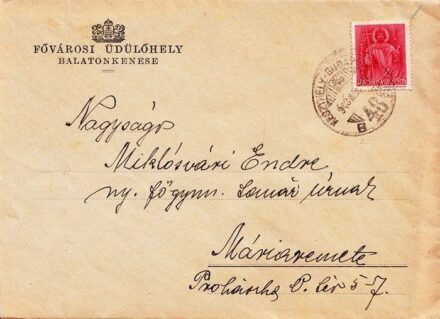 FŐVÁROSI ÜDÜLŐHELY
BALATONKENESE
KESZTHELY-BUDA
48
Nagyságos
Miklósvári Endre
ny. főgymn. tanár úrnak
Máriaremete
Prohászka O. tér 5-7.